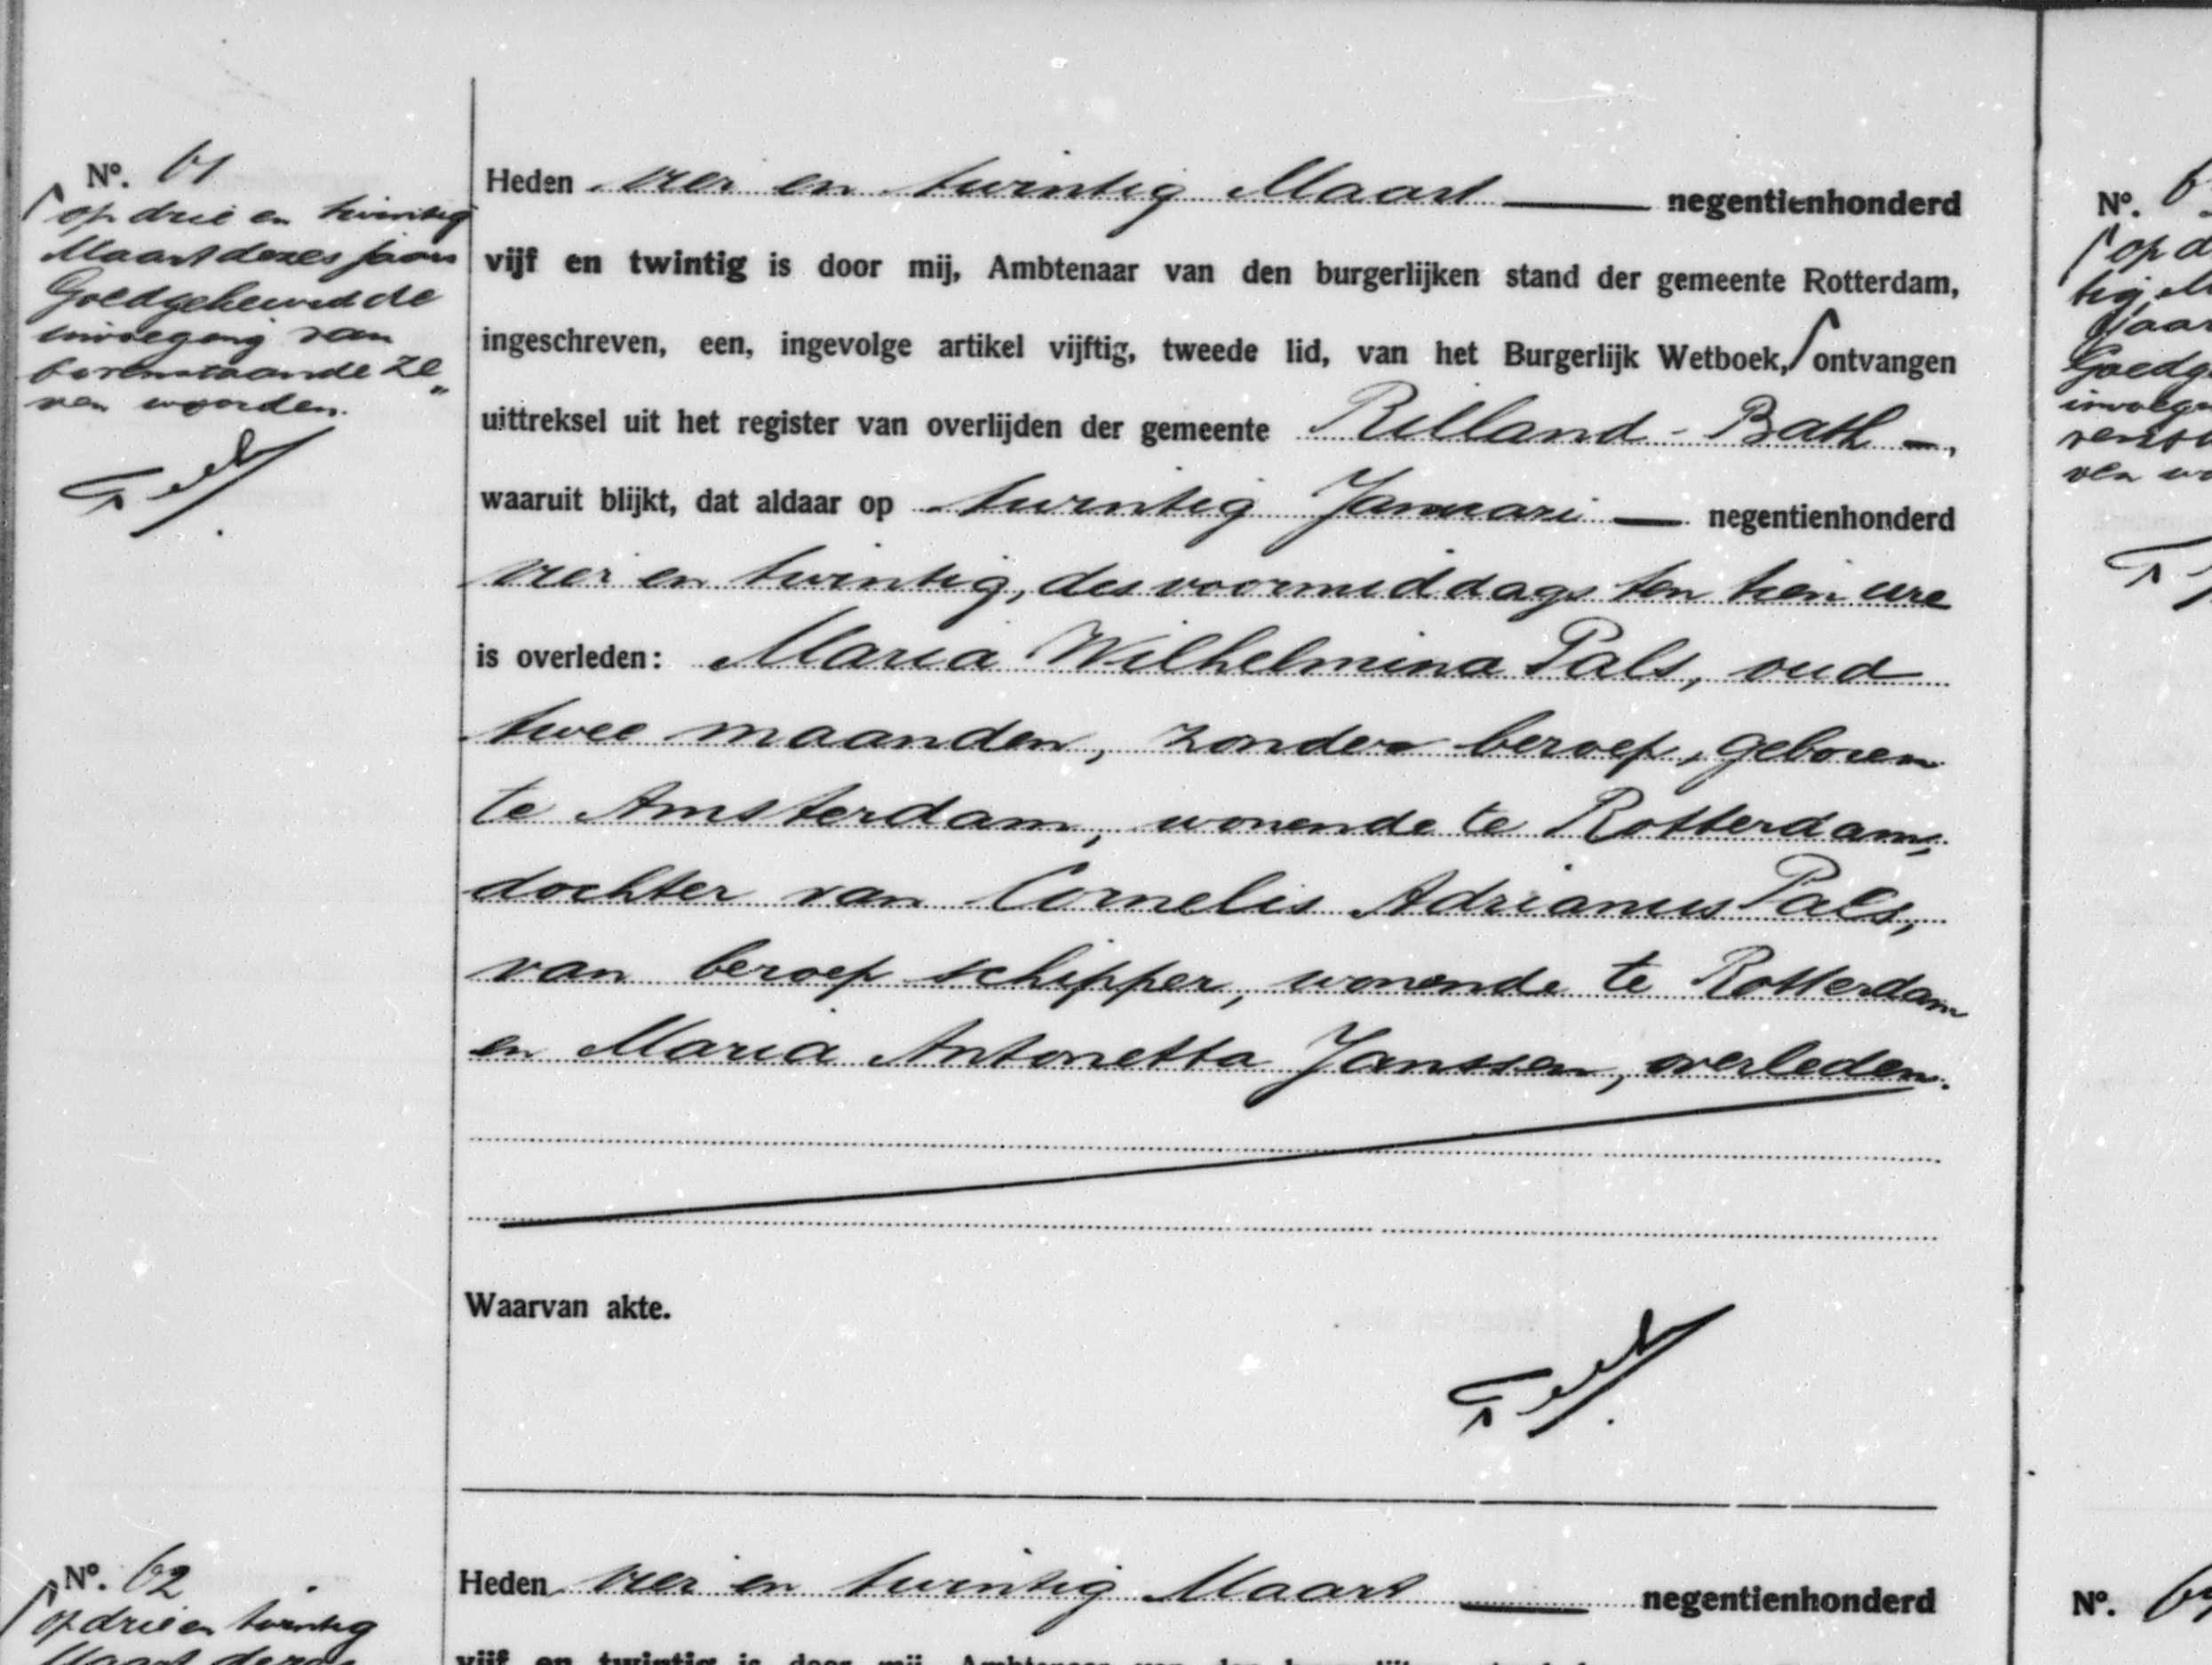 Nº. 61
op drie en twintig
Maart dezes jaars
Goedgekeurd de
invoeging van
bovenstaande ze„
ven woorden.
Heden vier en twintig Maart negentienhonderd
vijf en twintig is door mij, Ambtenaar van den burgerlijken stand der gemeente Rotterdam,
ingeschreven, een, ingevolge artikel vijftig, tweede lid, van het Burgerlijk Wetboek, ontvangen
uittreksel uit het register van overlijden der gemeente Rilland-Bath —,
waaruit blijkt, dat aldaar op twintig Januari — negentienhonderd
vier en twintig, des voormiddags ten tien ure
is overleden: Maria Wilhelmina Pals, oud
twee maanden, zonder beroep, geboren
te Amsterdam, wonende te Rotterdam,
dochter van Cornelis Adrianus Pals,
van beroep schipper, wonende te Rotterdam
en Maria Antonetta Janssen, overleden.
Waarvan akte.
Nº. 62
op drie en twintig
Maart dezes
Heden vier en twintig Maart — negentienhonderd
vijf en twintig is door mij, Ambtenaar van den burgerlijken stand
Nº. 6
op d
tig M
jaar
Goedg
invoeg
venst
ven wo
Nº. 6